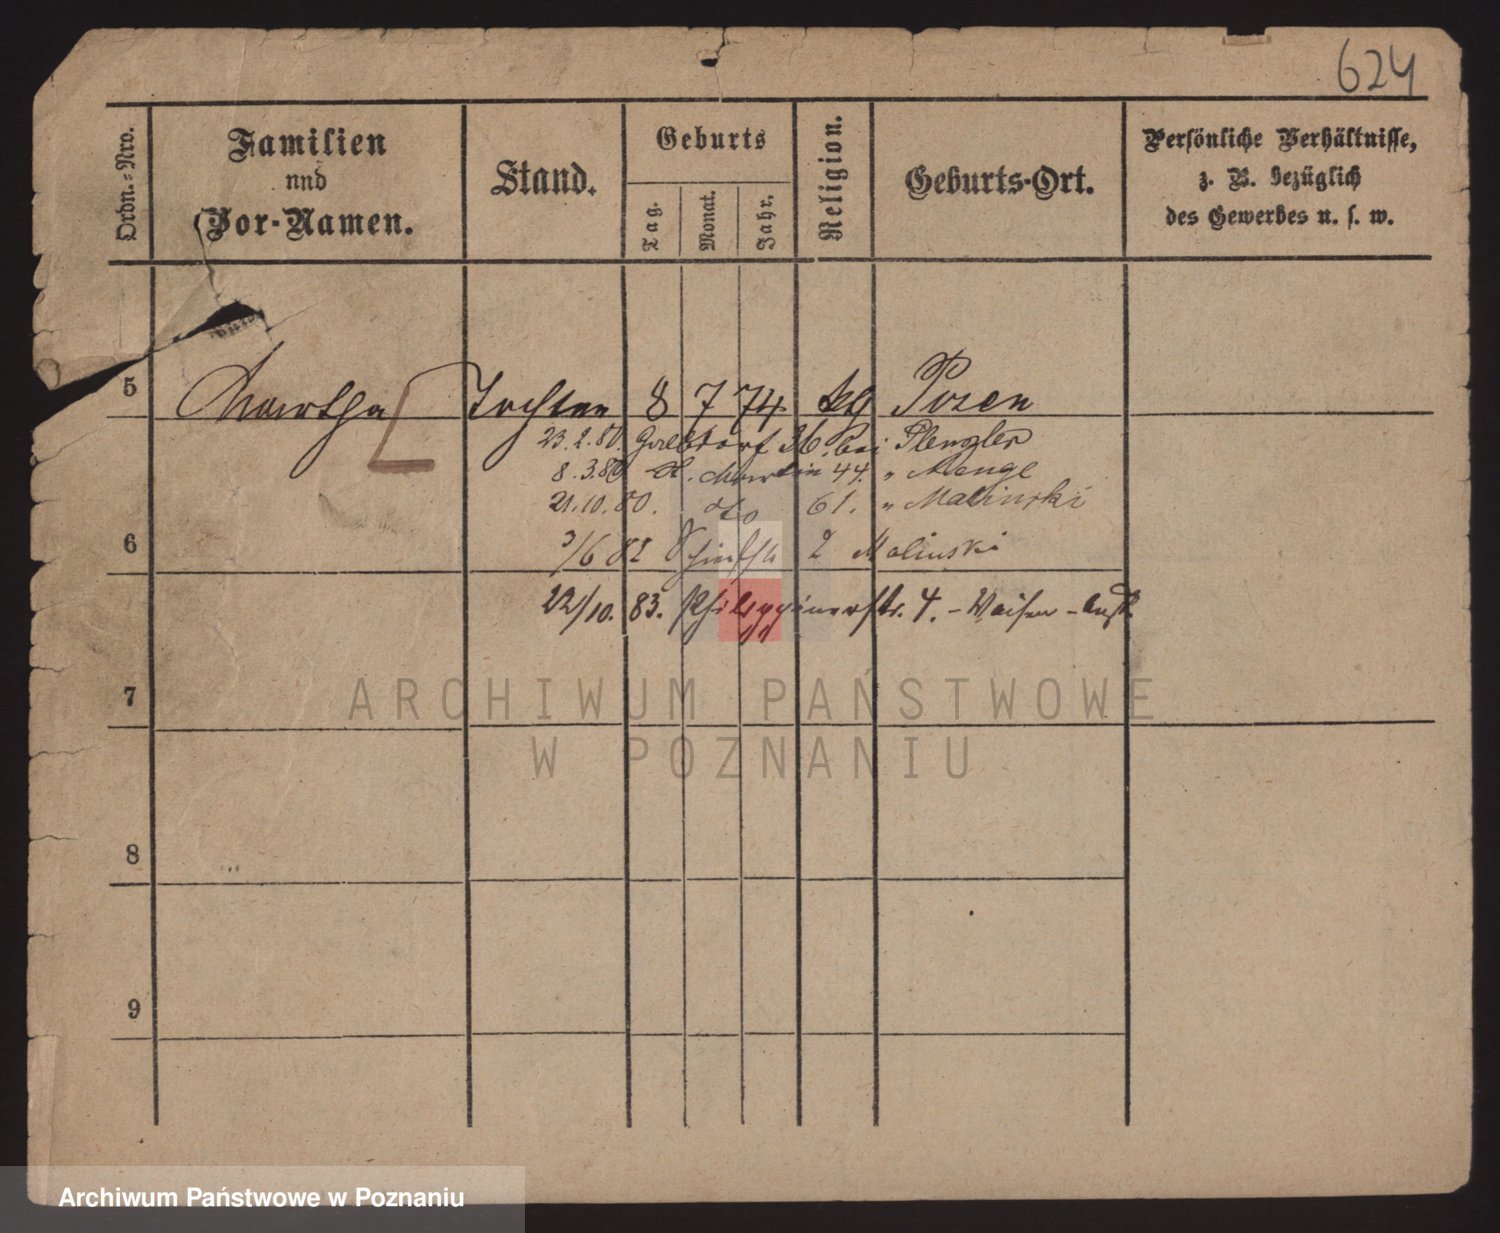 624
Ordn.-Nro.
Familien
nnd
Vor-Namen.
Stand.
Geburts
Tag.
Monat.
Jahr.
Religion.
Geburts-Ort.
Persönliche Verhältnisse,
z. B. bezüglich
des Gewerbes u. s. w.
5 Martha Tochter 8 7 74 kg Posen
23.2.80. 36. bei
8.3.80 St. Martin 44. " Menge
21.10.80. dto 61. " Malinski
6
3/6 82 2 Malinski
22/10. 83. Philippinerstr. 4. - Waisen-Anst.
7
8
9
ARCHIWUM PAŃSTWOWE
W POZNANIU
Archiwum Państwowe w Poznaniu